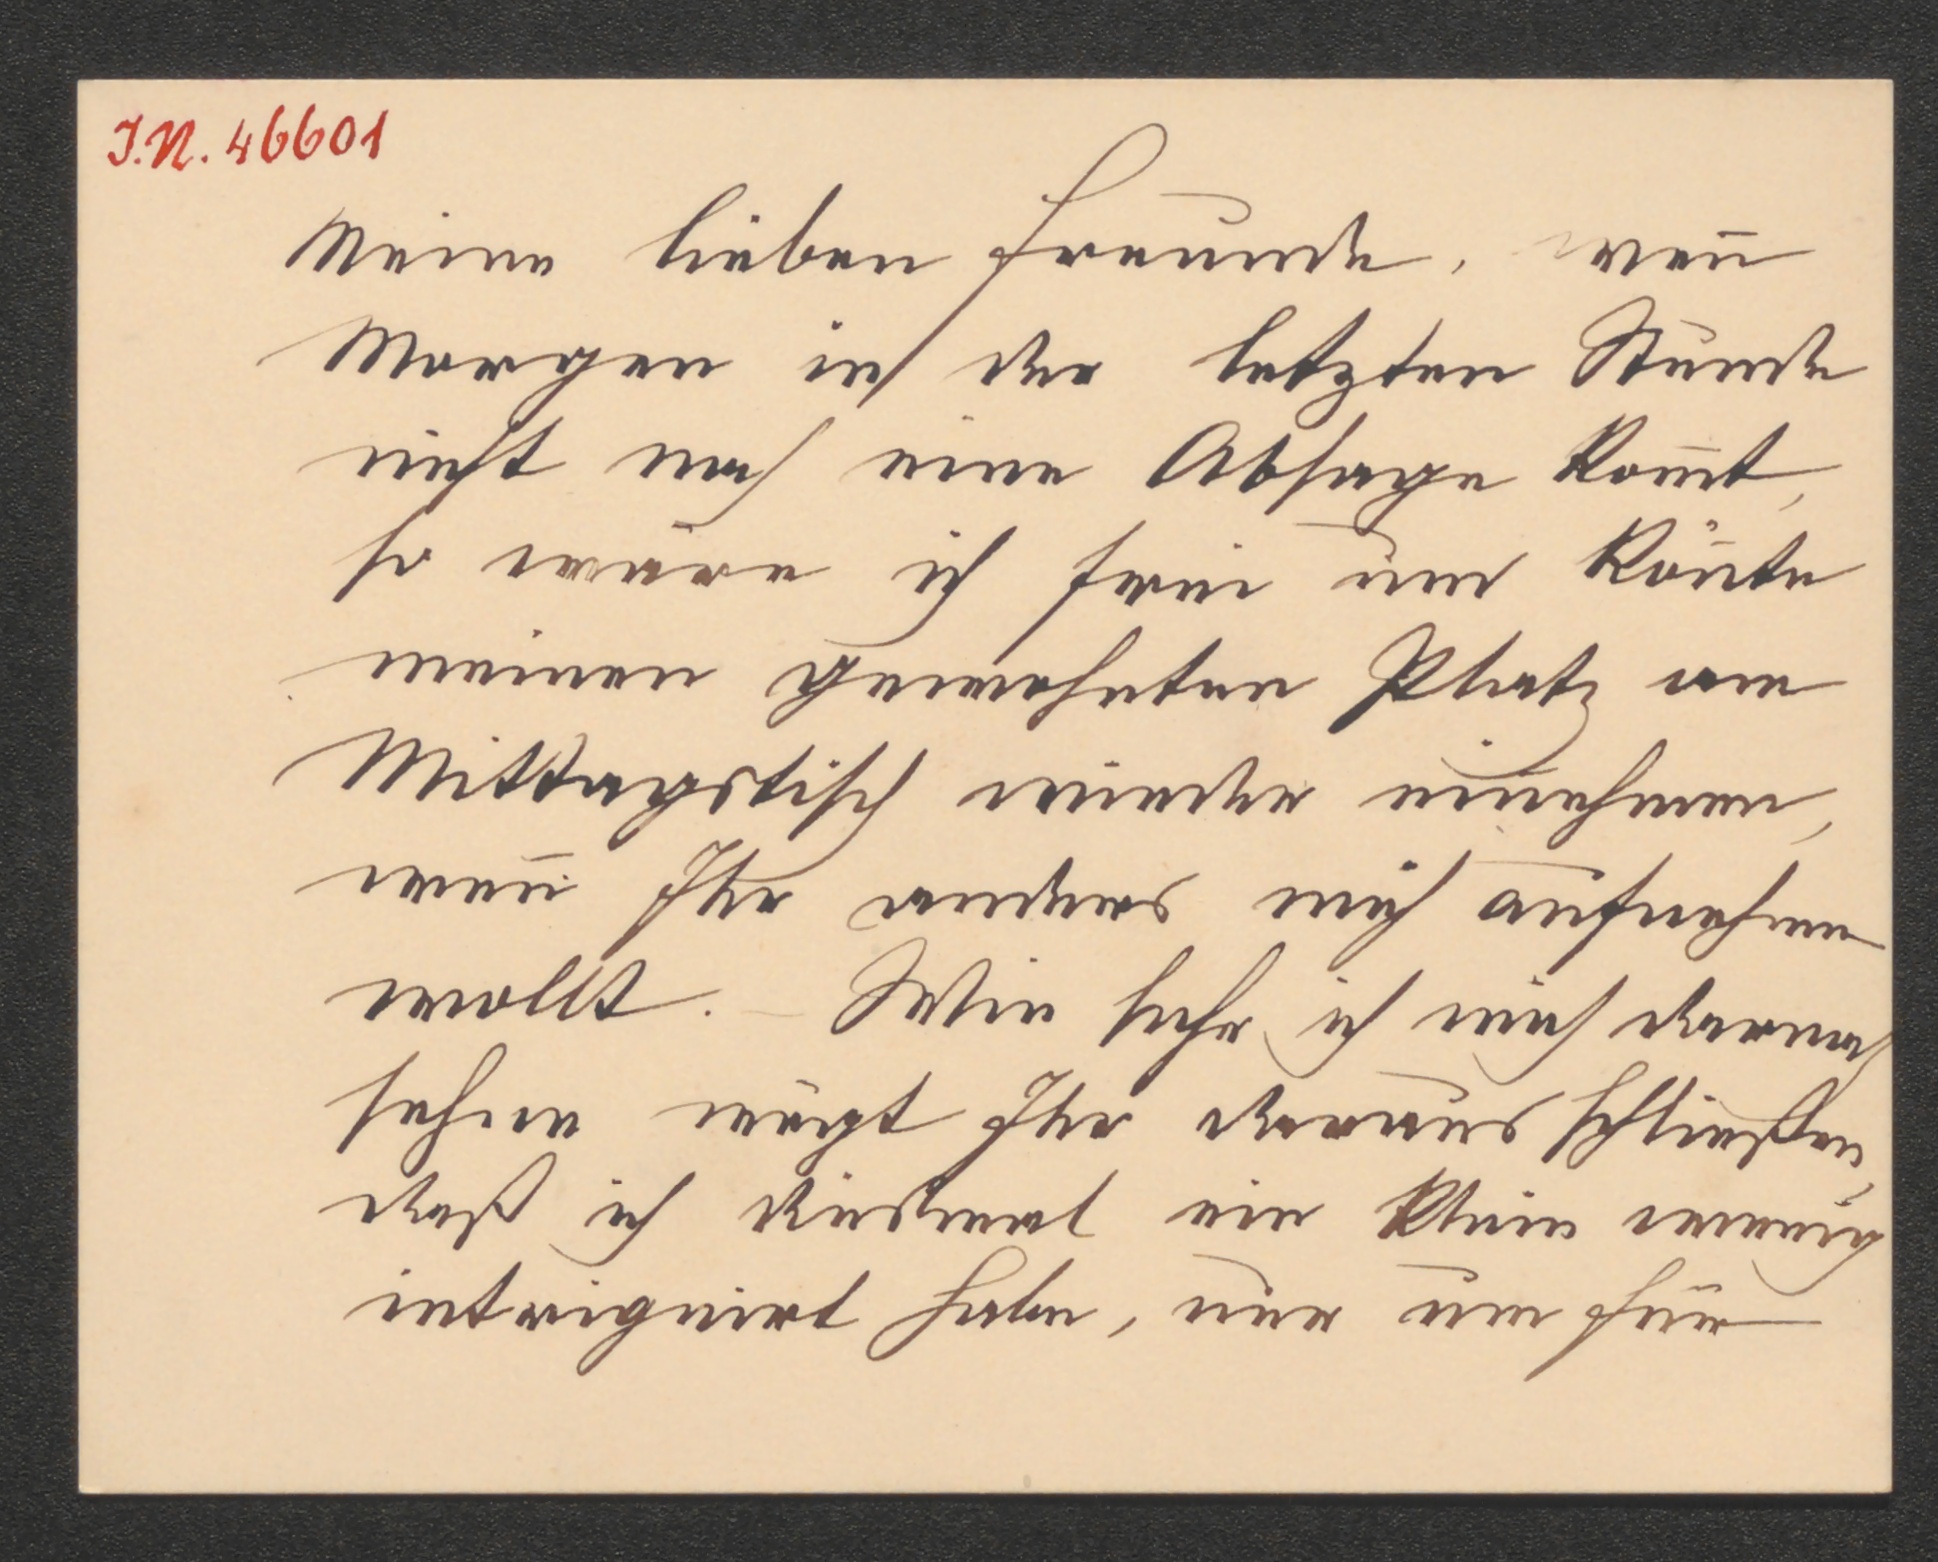 I.N. 46601
Meine lieben Freunde, wen̅
Morgen in der letzten Stunde
nicht noch eine Absage kom̅t,
so wäre ich frei und kön̅te
meinen gewohnten Platz am
Mittagstisch wieder einnehmen,
wen̅ Ihr anders mich aufnehmen
wollt. – Wie sehr ich mich darnach
sehne mögt Ihr daraus schließen,
daß ich diesmal ein klein wenig
intriguirt habe, nur um für